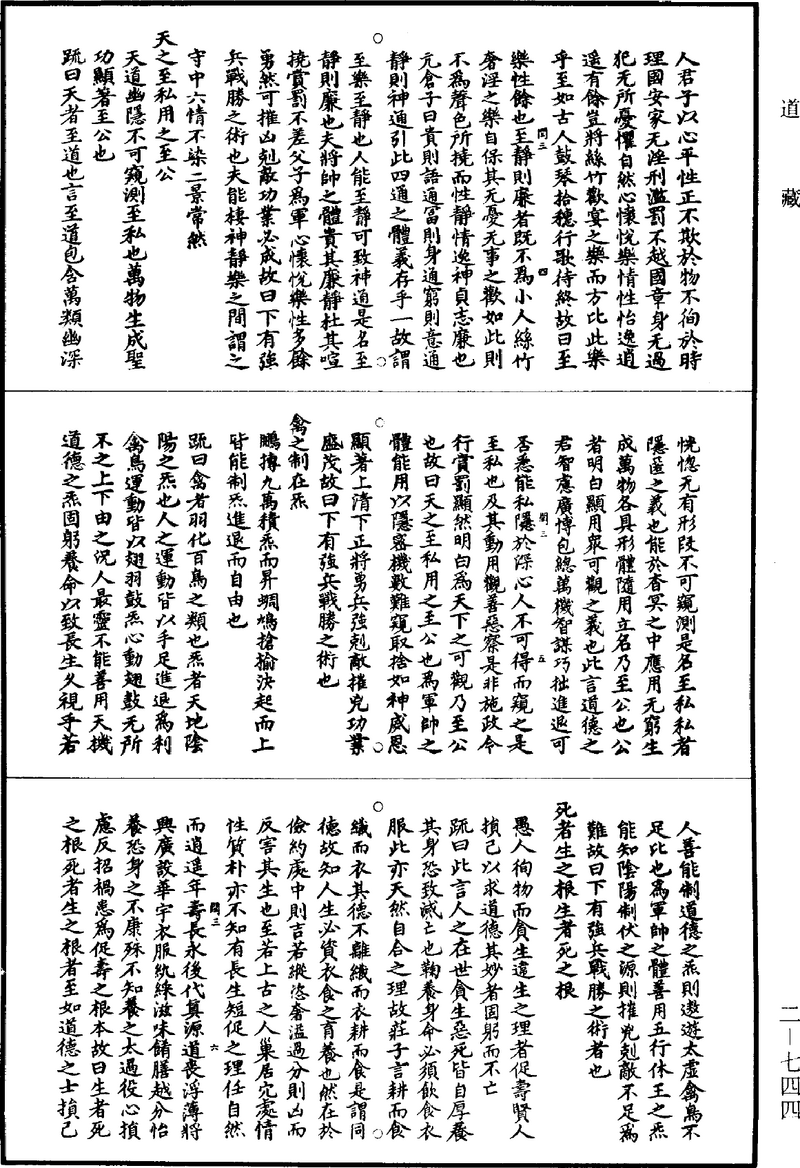 道藏
人君子以心平性正不欺於物不徇於時
理國安家无淫刑濫罰不越國章身无過
犯无所憂懼自然心懷悅樂情性怡逸逍
遥有餘豈將絲竹歡宴之樂而方比此樂
乎至如古人鼓琴拾穗行歌待終故曰至
樂性餘也至靜則廉者既不爲小人絲竹
奢淫之樂自保其无憂无事之歡如此則
不爲聲色所撓而性靜情逸神貞志廉也
亢倉子曰貴則語通富則身通窮則意通
靜則神通引此四通之體義存乎一故謂
至樂至靜也人能至靜可致神通是名至
靜則廉也夫將帥之體貴其廉靜杜其喧
撓賞罰不差父子爲軍心懷悅樂性多餘
勇然可摧凶剋敵功業必成故曰下有強
兵戰勝之術也夫能棲神靜樂之間謂之
守中六情不染二景常然
天之至私用之至公
天道幽隱不可窺測至私也萬物生成聖
功顯著至公也
疏曰天者至道也言至道包含萬類幽深
恍惚无有形段不可窺測是名至私私者
隱匿之義也能於杳冥之中應用无窮生
成萬物各具形體隨用立名乃至公也公
者明白顯用衆可觀之義也此言道德之
君智慮廣博包總萬機智謀巧拙進退可
否悉能私隱於深心人不可得而窺之是
至私也及其動用觀善惡察是非施政令
行賞罰顯然明白爲天下之可觀乃至公
也故曰天之至私用之至公也爲軍帥之
體能用以隱密機數難窺取捨如神威恩
顯著上清下正將勇兵強剋敵摧兇功業
盛茂故曰下有強兵戰勝之術也
禽之制在炁
鵬摶九萬積炁而昇蜩鳩搶揄決起而上
皆能制炁進退而自由也
疏曰禽者羽化百鳥之類也炁者天地陰
陽之炁也人之運動皆以手足進退爲利
禽鳥運動皆以翅羽鼓炁心動翅鼓无所
不之上下由之況人最靈不能善用天機
道德之炁固躬養命以致長生久視乎若
人善能制道德之炁則遨遊太虛禽鳥不
足比也爲軍帥之體善用五行休王之炁
能知陰陽制伏之源則摧兇剋敵不足爲
難故曰下有強兵戰勝之術者也
死者生之根生者死之根
愚人徇物而貪生違生之理者促壽賢人
損己以求道德其妙者固躬而不亡
疏曰此言人之在世貪生惡死皆自厚養
其身恐致滅亡也鞠養身命必須飲食衣
服此亦天然自合之理故莊子言耕而食
織而衣其德不離織而衣耕而食是謂同
德故知人生必資衣食之育養也然在於
儉約處中則吉若縱恣奢溢過分則凶而
反害其生也至若上古之人巢居穴處情
性質朴亦不知有長生短促之理任自然
而逍遥年壽長永後代真源道喪浮薄將
興廣設華宇衣服紈綵滋味餚膳越分怡
養恐身之不康殊不知養之太過役心損
慮反招禍患爲促壽之根本故曰生者死
之根死者生之根者至如道德之士損己
閏三
四
閏三
五
閏三
六
二－七四四